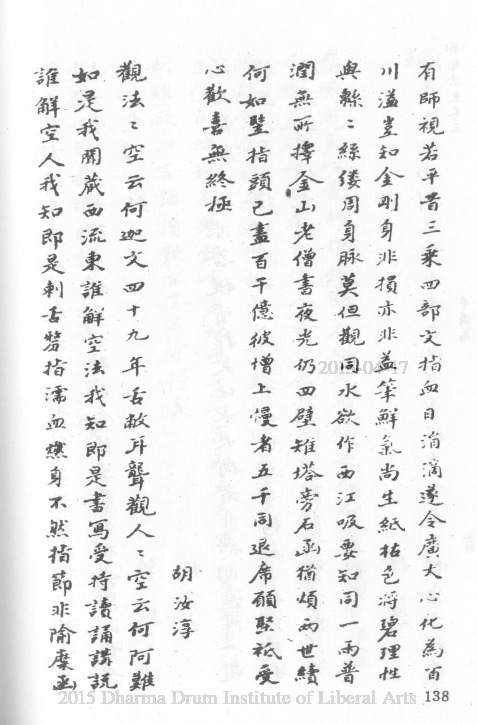 有師視若平昔三乘四部文指血日消滴遂令廣大心化為百
川溢豈知金剛身非損亦非益筆鮮氣尚生紙枯色將碧理性
與縣〻絲縷周身脉莫但觀同水欲作西江吸要知同一雨普
潤無所擇金山老僧書夜光仍四壁雉塔旁石函猶煩兩世續
何如豎指頭已盡百千億彼增上慢者五千同退席願堅祗受
心歡喜無終極
胡汝淳
觀法〻空云何迦文四十九年舌敝耳聾觀人〻空云何阿難
如是我聞藏西流東誰解空法我知即是書寫受持讀誦講說
誰解空人我知即是刺舌剺指濡血燃身不然指節非隃麋函
2015-04-17
2015 Dharma Drum Institute of Liberal Arts
138